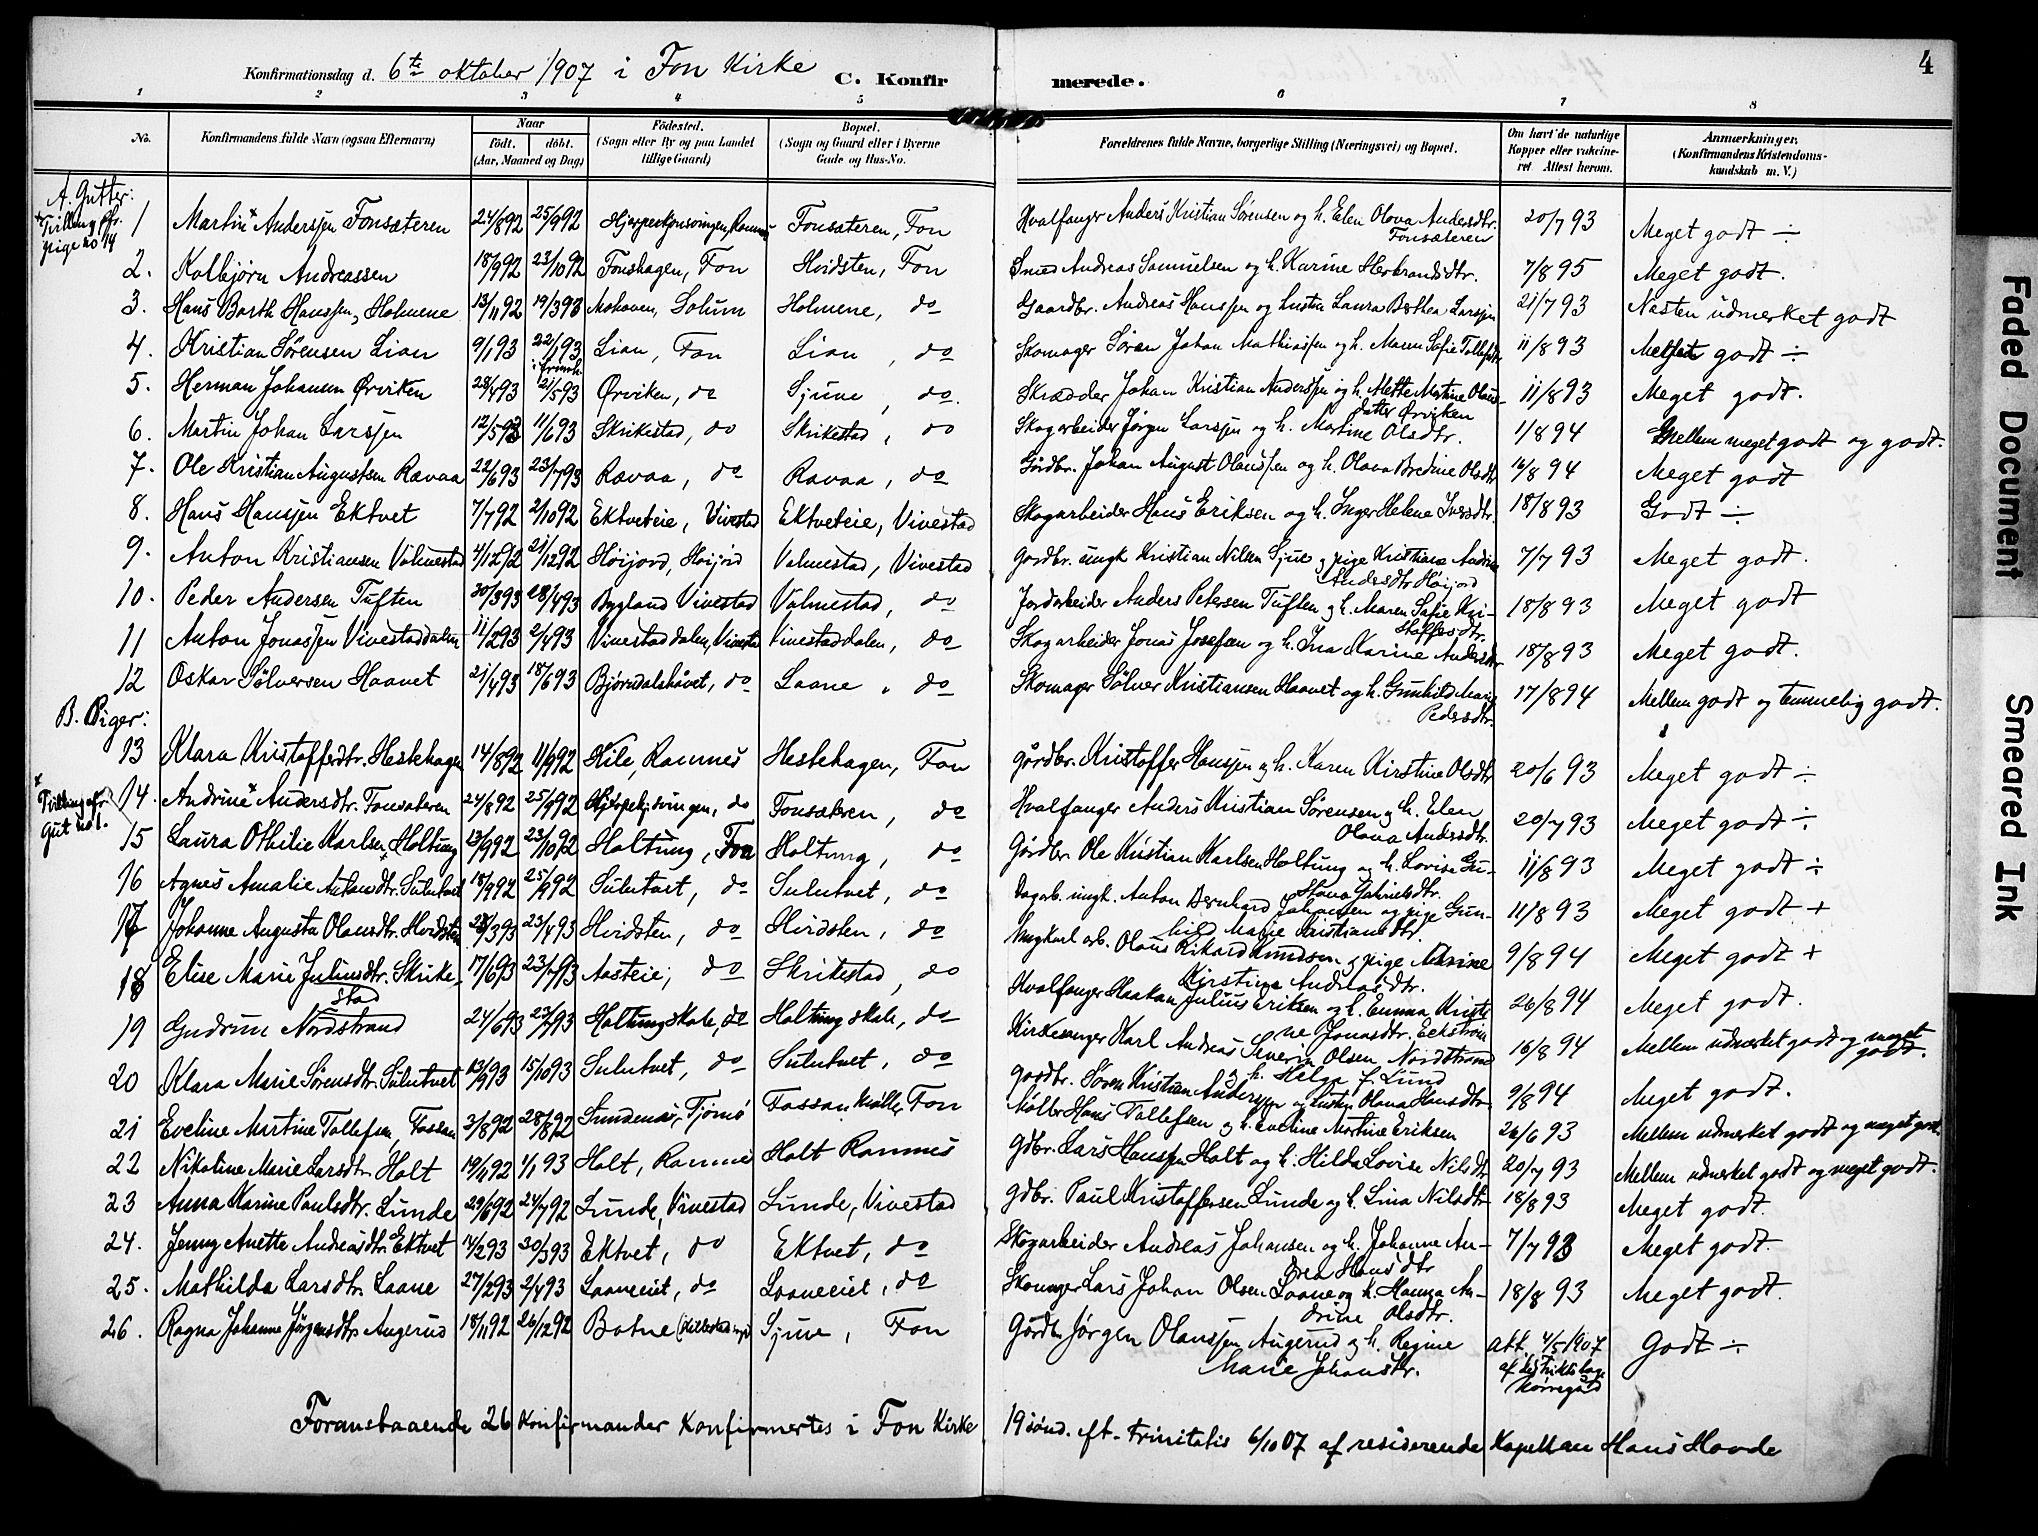 4
Konfirmationsdag d. 6te oktober 1907 i Fon Kirke C. Konfirmerede.
1 2 3 4 5 6 7 8
No. Konfirmandens fulde Navn (ogsaa Efternavn) Naar født. døbt. (Aar, Maaned og Dag) Fødested. (Sogn eller By og paa Landet tillige Gaard) Bopæl. (Sogn og Gaard eller i Byerne Gade og Hus-No. Forældrenes fulde Navne, borgerlige Stilling (Næringsvei) og Bopæl. Om havt de naturlige Kopper eller vakcineret Attest herom. Anmærkninger. (Konfirmandens Kristendomskundskab m. V.)
A. Gutter:
1 Martin Anderssen Fonsæteren 24/892 25/992 Fonsæteren, Fon Hvalfanger Anders Kristian Sørensen og h. Elen Olava Andersdtr. Fonsæteren 20/7 93 Meget godt ÷
Tvilling af pige no 14
2. Kolbjørn Andreassen 18/992 23/1092 Fonshagen, Fon Hvidsten, Fon Smed Andreas Samuelsen og h. Karine Herbrandsdtr. 7/8 95 Meget godt.
3. Hans Barth Hanssen Holmene 13/1192 19/393 Mohaven, Solum Holmene, do Gaardbr. Andreas Hanssen og hustru Laura Berthea Larssen 21/7 93 Næsten udmerket godt
4. Kristian Sørensen Lian 9/193 22/193 Lian, Fon Lian, do Skomager Søren Johan Mathiassen og h. Maren Sofie Tollefsdtr. 11/8 93 godt ÷
5. Herman Johansen Ørviken 28/493 21/593 Ørviken, do Sjuve, do. Skrædder Johan Kristian Anderssen og h. Mette Martine Olausdatter Ørviken 11/8 93 Meget godt.
6. Martin Johan Larssen 12/593 11/693 Skrikestad, do Skrikestad, do Skogarbeider Jørgen Larssen og h. Martine Olsdtr. 1/8 94 Mellem meget godt og godt.
7. Ole Kristian Augustsen Ravaa 22/693 23/793 Ravaa, do Ravaa, do Gårdbr. Johan August Olaussen og h. Olava Bredine Olsdtr 16/8 94 Meget godt
8. Hans Hanssen Ektvet 7/792 2/1092 Ektveteie, Vivestad Ektveteie, Vivestad Skogarbeider Hans Eriksen og h. Inger Helene Iversdtr. 18/8 93 Godt ÷
9. Anton Kristiansen Valmestad 4/1292 21/1292 Høijord, Høijord Valmestad, Vivestad Gordbr. ungk Kristian Nilsen Sjue og pige Kristiane Andrine Andersdtr Høijord 7/7 93 Meget godt.
10. Peder Andersen Tuften 30/393 28/493 Bygland Vivestad Valmestad, do Jordarbeider Anders Petersen Tuften og h. Maren Sofie Kristoffersdtr. 18/8 93 Meget godt
11 Anton Jonassen Vivestaddalen 11/293 2/493 Vivestaddalen, Vivestad Vivestaddalen, do Skogarbeider Jonas Josefsen og h. Ina Karine Andersdtr 18/8 93 Meget godt.
12 Oskar Sølversen Haavet 21/493 18/693 Bjørndalshåvet, do Laane, do Skomager Sølver Kristiansen Haavet og h. Gunhild Marie Pedersdtr. 17/8 94 Mellem godt og temmelig godt.
B. Piger:
13 Klara Kristoffersdtr. Hestehagen 14/892 11/992 Kile, Ramnes Hestehagen, Fon gårdbr. Kristoffer Hanssen og h. Karen Kirstine Olsdtr 20/6 93 Meget godt ÷
14. Andrine Andersdtr. Fonsæteren 24/892 25/992 do Fonsæteren, do Hvalfanger Anders Kristian Sørensen og h. Elen Olava Andersdtr. 20/7 93 Meget godt ÷
Tvilling af gut no 1.
15 Laura Othilie Karlsen Holtung 13/992 23/1092 Holtung, Fon Holtung, do Gårdbr. Ole Kristian Karlsen Holtung og h. Lovise Gustava Gabrielsdtr. 11/8 93 Meget godt ÷
16 Agnes Amalie Antonsdtr. Sulutvet 18/992 25/992 Sulutvet, do Sulutvet, do Dagarb. ungk. Anton Bernhard Johansen og pige Gunhild Marie Kristiansdtr. 11/8 93 Meget godt +
17 Johanne Augusta Olausdtr. Hvidsten 28/393 23/493 Hvidsten, do Hvidsten, do Ungkarl arb. Olaus Rikard Knudsen og pige Kirstine Andreasdtr. 9/8 94 Meget godt +
18 Elise Marie Juliusdtr. Skrikestad 17/693 23/793 Aasteie, do Skrikestad, do Hvalfanger Haakan Julius Eriksen og h. Emma Kristine Jonasdtr. Eckstrøm 26/8 94 Meget godt.
19 Gudrun Nordstrand 24/693 23/793 Holtungskole, do Holtung skole, do Kirkesanger Karl Andreas Severin Olsen Nordstrand og h. Helga f. Lund 16/8 94 Mellem udmerket godt og meget godt.
20 Klara Marie Sørensdtr. Sulutvet 13/993 15/1093 Sulutvet, do Sulutvet, do gordbr. Søren Kristian Anderssen og hustru Olava Hansdtr. 9/8 94 Meget godt.
21 Eveline Martine Tollefsen Fossan 3/892 28/892 Sundene, Tjømø Fossan Mølle, Fon Møller Hans Tollefsen og h. Eveline Martine Eriksen 26/6 93 Mellem udmerket godt og meget godt.
22 Nikoline Marie Larsdtr. Holt 19/1192 1/193 Holt, Ramnes Holt Ramnes gdbr. Lars Hanssen Holt og h. Hilda Lovise Nilsdtr 20/7 93 Mellem udmerket godt og meget godt.
23 Anna Karine Paulsdtr. Lunde 29/692 24/792 Lunde, Vivestad Lunde, Vivestad gdbr. Paul Kristoffersen Lunde og h. Lina Nilsdtr 18/8 93 Meget godt.
24. Jenny Anette Andreasdtr. Ektvet 14/293 30/393 Ektvet, do Ektvet, do Skogarbeider Andreas Johansen og h. Johanne Andrea Hansdtr 7/7 93 Meget godt.
25. Mathilda Larsdtr. Laane 27/293 2/493 Laaneeiet, do Laaneeiet, do Skomager Lars Johan Olsen Laane og h. Hanna Andrine Olsdtr. 18/8 93 Meget godt.
26. Ragna Johanne Jørgensdtr. Augerud 18/1192 26/1292 Botne Sjuve, Fon Gårdbr Jørgen Olaussen Augerud og h. Regine Marie Johansdtr. att. 4/5 1907 af distriktslæge Nørregård Godt ÷
Foranstaaende 26 Konfirmander Konfirmertes i Fon Kirke 19 sønd. eft. trinitatis 6/10 07 af residerende Kapellan Hans Hovde
Faded Document Smeared Ink